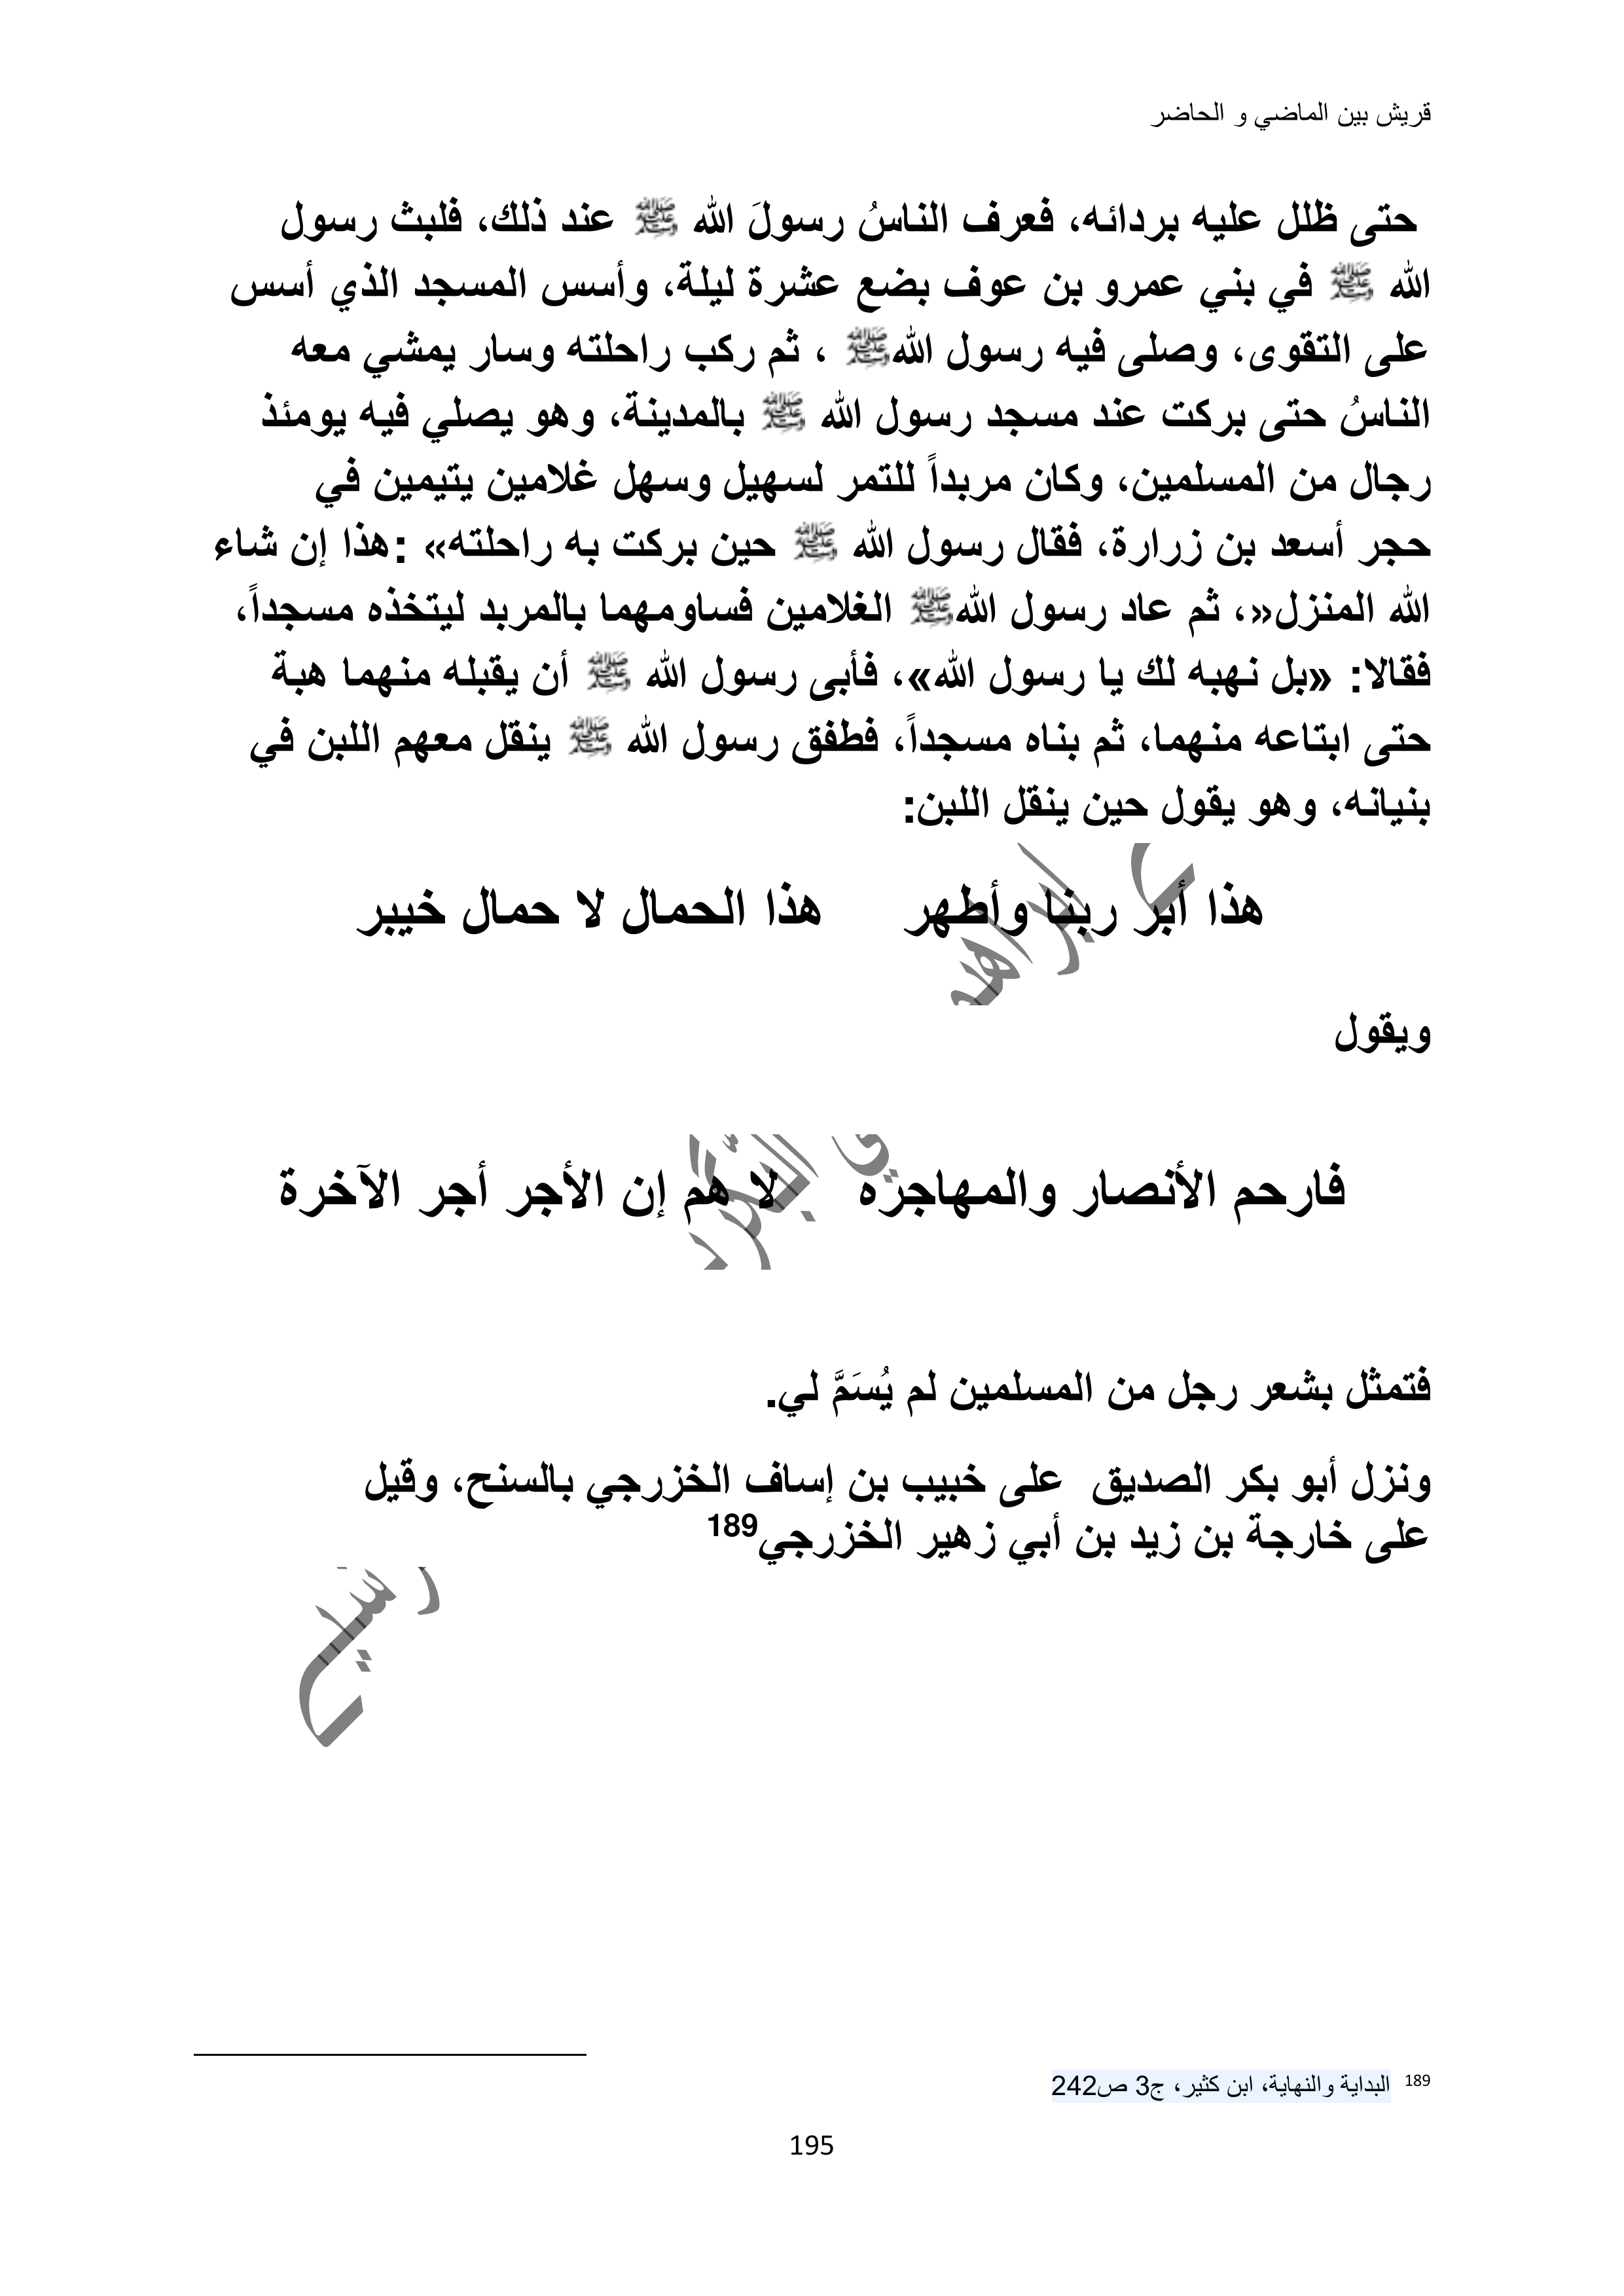 قريش بين الماضي و الحاضر
حتى ظلل عليه بردائه، فعرف الناسُ رسولَ الله ﷺ عند ذلك، فلبث رسول
الله ﷺ في بني عمرو بن عوف بضع عشرة ليلة، وأسس المسجد الذي أسس
على التقوى، وصلى فيه رسول اللهﷺ ، ثم ركب راحلته وسار يمشي معه
الناسُ حتى بركت عند مسجد رسول الله ﷺ بالمدينة، وهو يصلي فيه يومئذ
رجال من المسلمين، وكان مربداً للتمر لسهيل وسهل غلامين يتيمين في
حجر أسعد بن زرارة، فقال رسول الله ﷺ حين بركت به راحلته» :هذا إن شاء
الله المنزل«، ثم عاد رسول اللهﷺ الغلامين فساومهما بالمربد ليتخذه مسجداً،
فقالا: «بل نهبه لك يا رسول الله»، فأبى رسول الله ﷺ أن يقبله منهما هبة
حتى ابتاعه منهما، ثم بناه مسجداً، فطفق رسول الله ﷺ ينقل معهم اللبن في
بنيانه، وهو يقول حين ينقل اللبن:
هذا أبر ربنا وأطهر هذا الحمال لا حمال خيبر
ويقول
فارحم الأنصار والمهاجره لا هم إن الأجر أجر الآخرة
فتمثل بشعر رجل من المسلمين لم يُسَمَّ لي.
ونزل أبو بكر الصديق على خبيب بن إساف الخزرجي بالسنح، وقيل
على خارجة بن زيد بن أبي زهير الخزرجي189
189 البداية والنهاية، ابن كثير، ج3 ص242
195